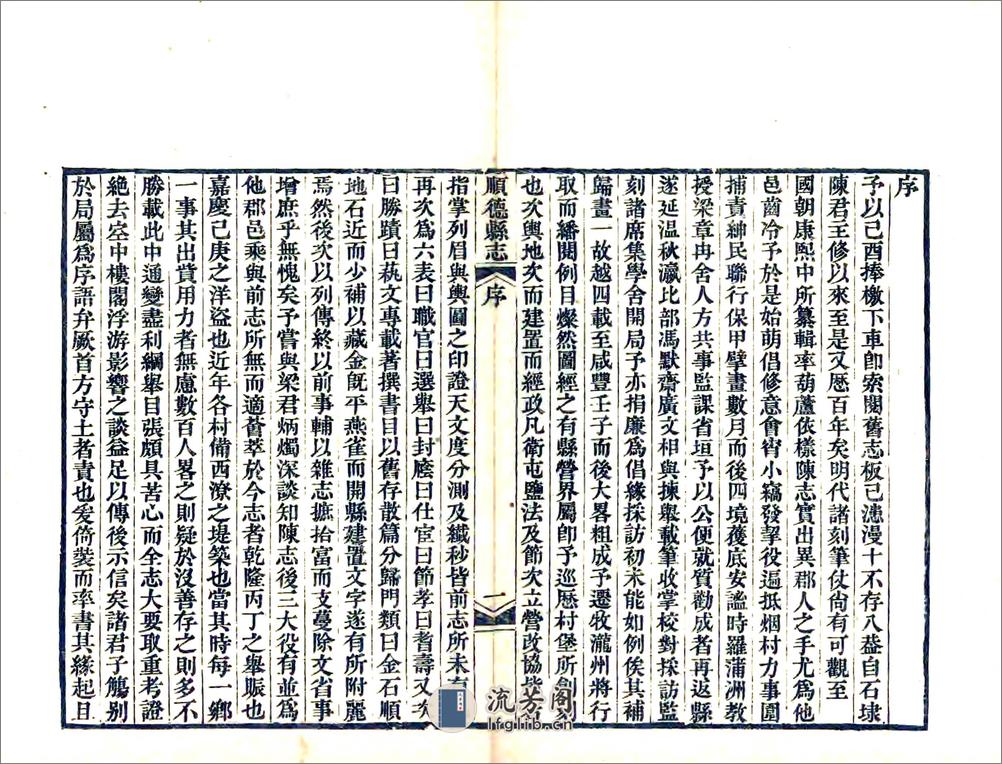 序
予以己酉捧檄下車卽索閱舊志板已漶漫十不存八葢自石埭
陳君王修以來至是又歷百年矣明代諸刻筆仗尙有可觀至
國朝康熙中所纂輯率葫蘆依樣陳志實出異郡人之手尤爲他
邑齒冷予於是始萌倡修意會宵小竊發挐役遍抵烟村力事圍
捕責紳民聯行保甲擘畫數月而後四境蒦底安謐時羅蒲洲敎
授梁章冉舍人方共事監課省垣予以公便就質勸成者再返縣
遂延温秋瀛比部馮默齋廣文相與揀舉載筆收掌校對採訪監
刻諸席集學舍開局予亦捐廉爲倡緣採訪初未能如例俟其補
歸畫一故越四載至咸豐壬子而後大畧粗成予遷牧瀧州將行
取而繙閱例目燦然圖經之有縣營界屬卽予巡歷村堡所創刻
也次輿地次而建置而經政凡衞屯鹽法及節次立營改協皆
順德縣志
序
一
指掌列眉與輿圖之印證天文度分測及纖秒皆前志所未有
再次爲六表曰職官曰選舉曰封廕曰仕宦曰節孝曰耆壽又次
曰勝蹟曰藝文專載著撰書目以舊存散篇分歸門類曰金石順
地石近而少補以藏金旣平燕雀而開縣建置文字遂有所附麗
焉然後次以列傳終以前事輔以雜志摭拾富而支蔓除文省事
增庶乎無愧矣予嘗與梁君炳燭深談知陳志後三大役有並爲
他郡邑乘與前志所無而適薈萃於今志者乾隆丙丁之舉賑也
嘉慶己庚之洋盜也近年各村備西潦之堤築也當其時每一鄉
一事其出貲用力者無慮數百人畧之則疑於沒善存之則多不
勝載此中通變盡利綱舉目張頗具苦心而全志大要取重考證
絶去空中樓閣浮游影響之談益足以傳後示信矣諸君子觴别
於局屬爲序語弁厥首方守土者責也爰倚裝而率書其緣起且
流芳閣
lfglib.cn